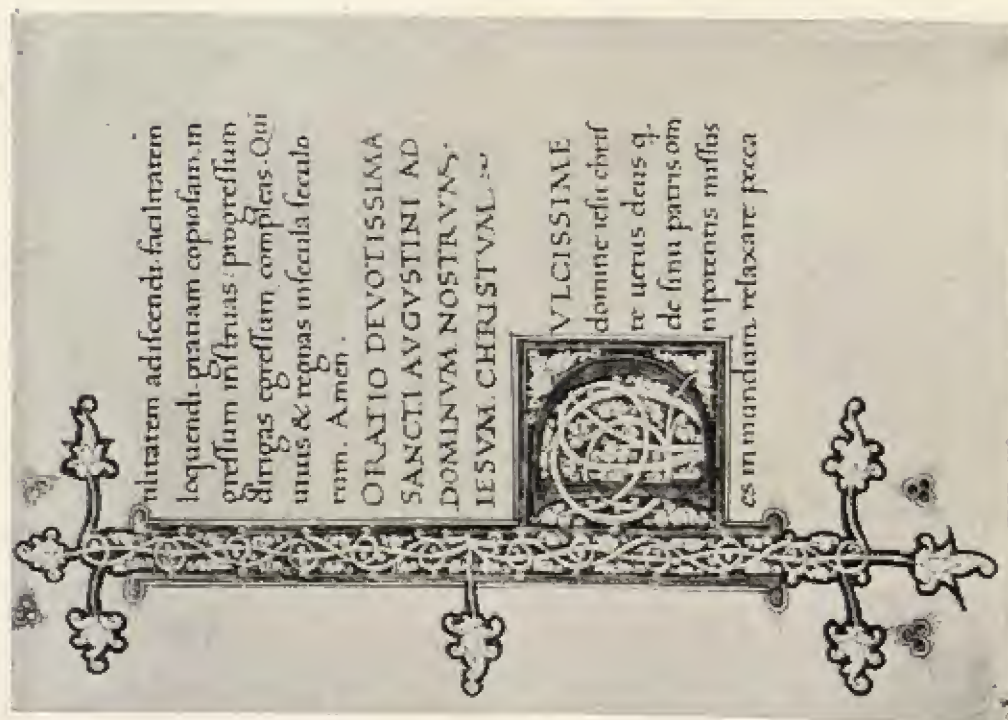 tilitatem adiscendi·facilitatem
loquendi·gratiam copiosam.in
gressum instruas·progressum
dirigas egressum compleas·Qui
uiuis & regnas insecula seculo
rum. Amen.
ORATIO DEVOTISSIMA
SANCTI AVGVSTINI AD
DOMINVM NOSTRVM·
IESVM. CHRISTVM.
DVLCISSIME
domine iesu chris
te uerus deus q.
de sinu patris om
nipotentis missus
es in mundum relaxare pecca